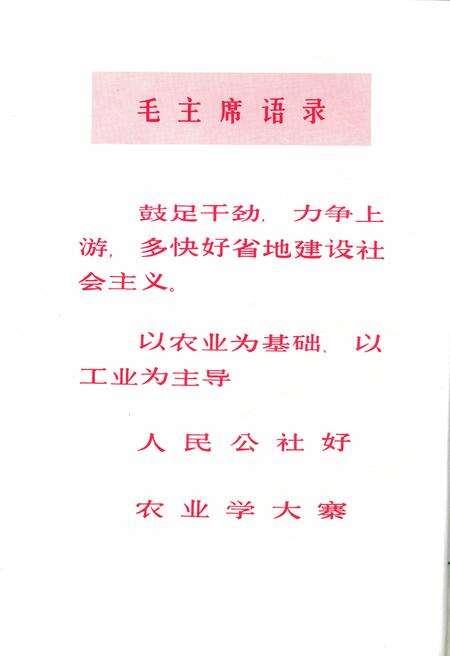 毛主席语录
鼓足干劲，力争上
游，多快好省地建设社
会主义。
以农业为基础，以
工业为主导
人民公社好
农业学大寨